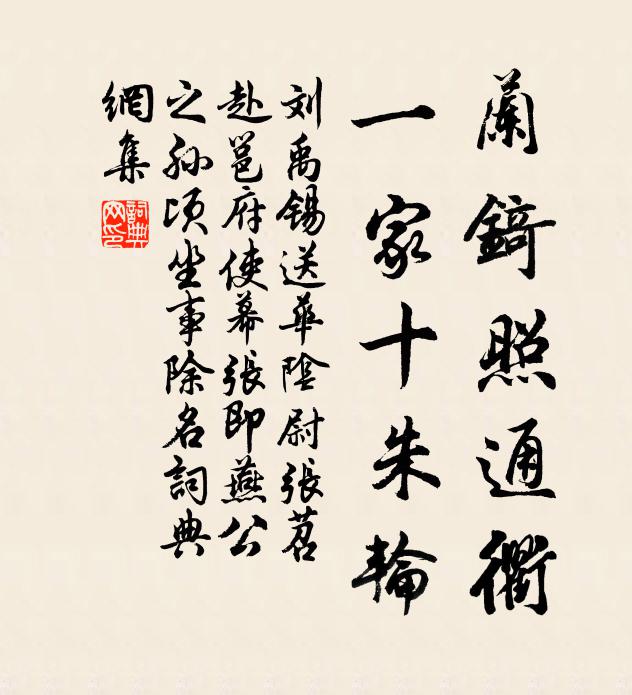 蘭錡照通衢
一家十朱輪
刘禹锡送華陰尉張苕
赴邕府使幕張即燕公
之孙顷坐事除名詞典
網集
詞典网印